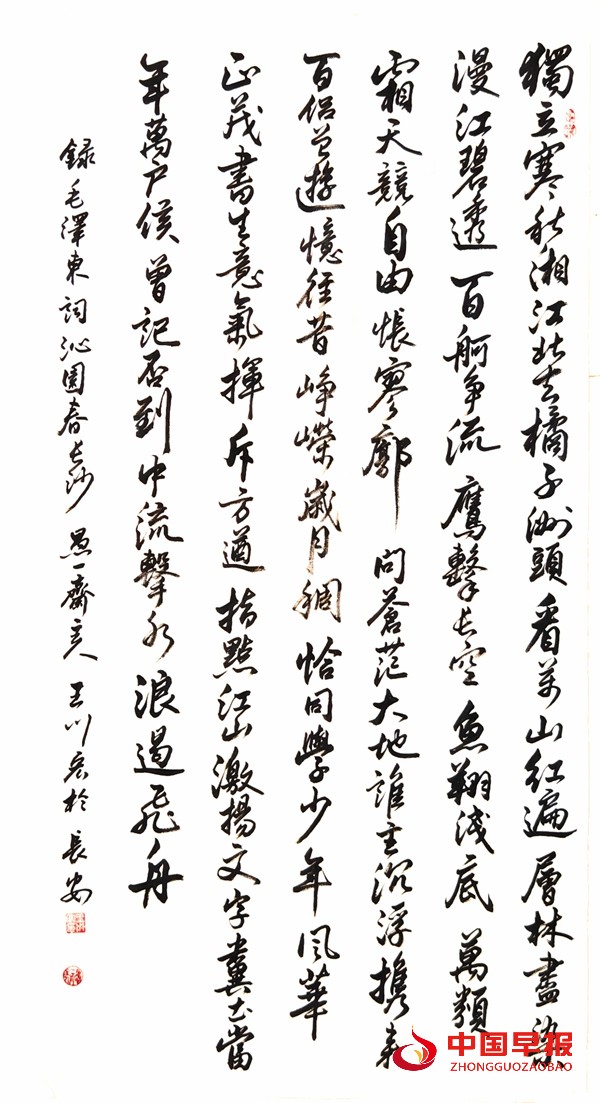 獨立寒秋湘江北去橘子洲頭看萬山紅遍層林盡染
漫江碧透百舸争流鷹擊長空魚翔淺底萬類
霜天競自由悵寥廓問蒼茫大地誰主沉浮攜來
百侣曾遊憶往昔崢嶸歲月稠恰同學少年风華
正茂書生意氣揮斥方遒指點江山激揚文字糞土當
年萬户侯曾記否到中流擊水浪遏飛舟
録毛澤東詞沁園春長沙 愚一齋主人 王川宏於長安
中国早报
ZHONGGUOZAOBAO